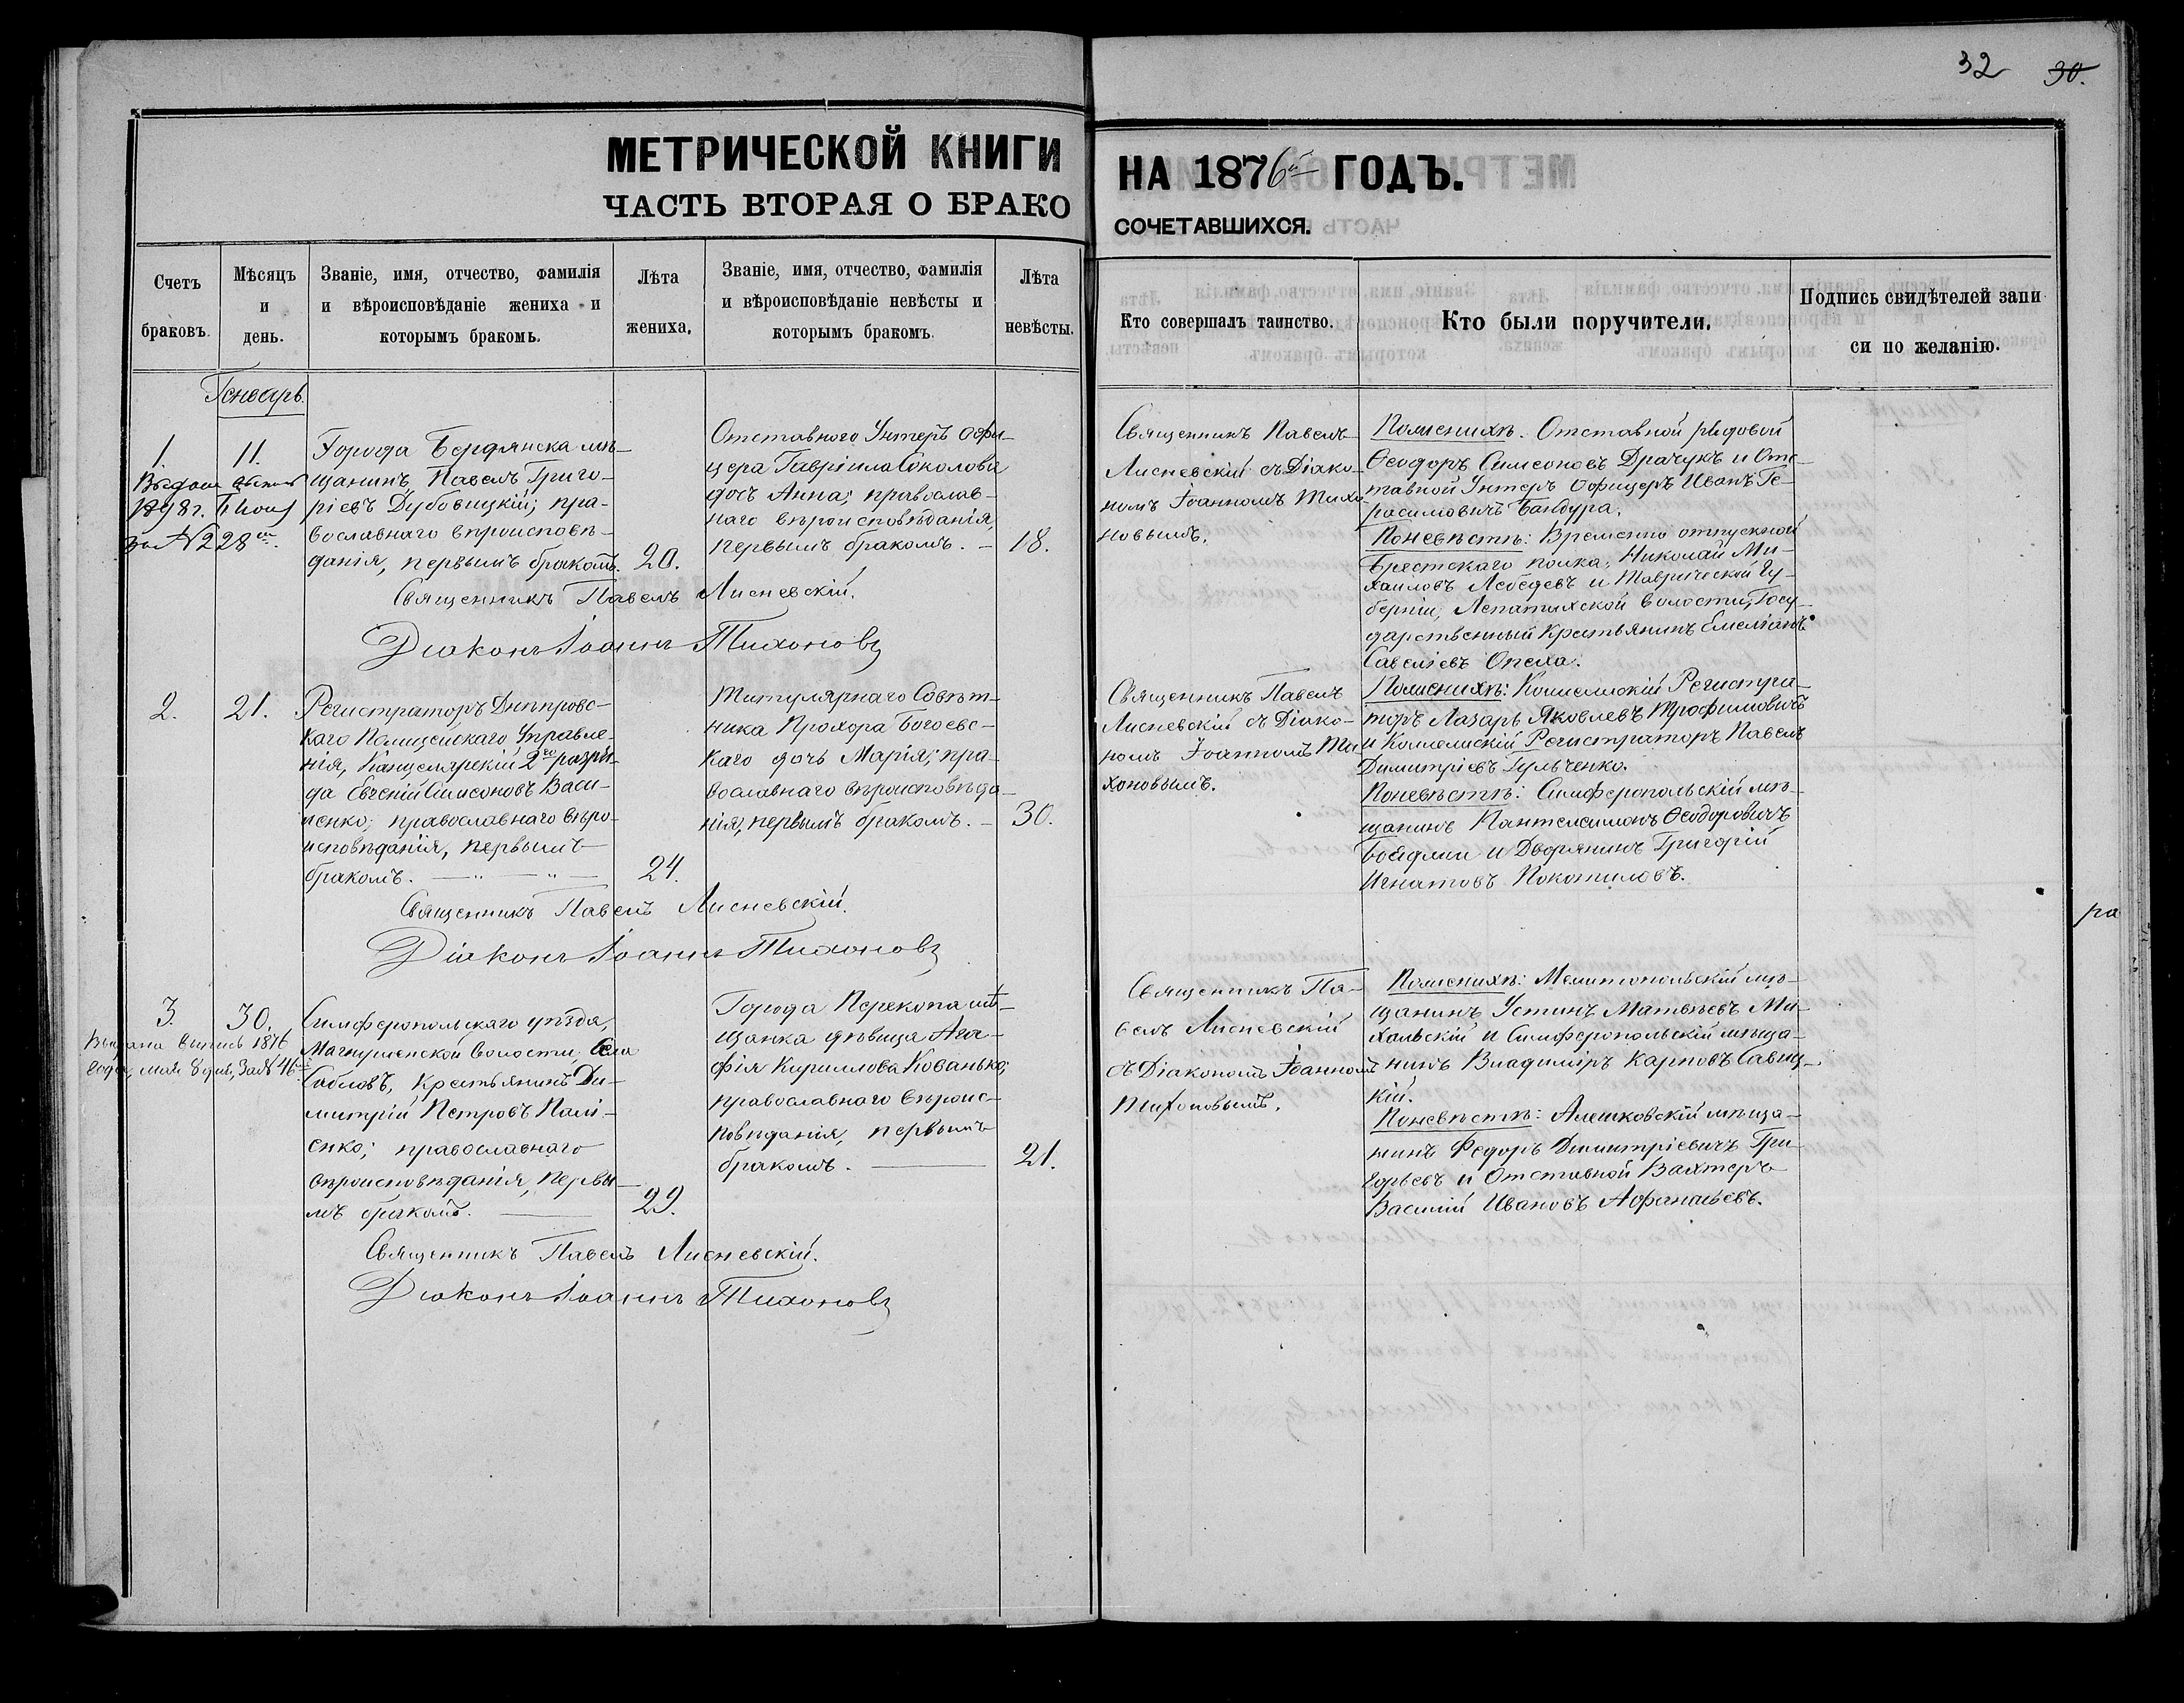 32 30.
МЕТРИЧЕСКОЙ КНИГИ НА 1876й ГОДЪ.
ЧАСТЬ ВТОРАЯ О БРАКО СОЧЕТАВШИХСЯ.
Счетъ браковъ.
Мѣсяцъ и день.
Званіе, имя, отчество, фамилія
и вѣроисповѣданіе жениха и
которымъ бракомъ.
Лѣта жениха.
Званіе, имя, отчество, фамилія
и вѣроисповѣданіе невѣсты и
которымъ бракомъ.
Лѣта невѣсты.
Кто совершалъ таинство.
Кто были поручители.
Подпись свидѣтелей запи
си по желанію.
Генварь.
1.
11.
1898 г.
за № 228
Города Бердянска мѣ-
щанинъ Павелъ Григо-
ріевъ Дубовицкій; пра-
вославнаго вѣроисповѣ-
данія, первымъ бракомъ.
20.
Отставного Унтеръ Офи-
цера Гавріила Соколова
дочь Анна; православ-
наго вѣроисповѣданія,
первымъ бракомъ. —
18.
Священникъ Павелъ
Лисневскій съ Діако-
номъ Іоанномъ Тихо-
новымъ.
По женихѣ. Отставной рядовой
Ѳеодоръ Симеоновъ Драчукъ и Отс-
тавной Унтеръ Офицеръ Иванъ Ге-
расимовичъ Бандура.
По невѣстѣ: Временно отпускной
Брестскаго полка, Николай Ми-
хаиловъ Лебедевъ и Таврической Гу-
берніи, Лепатихской волости, Госу-
дарственный Крестьянинъ Емеліанъ
Савеліевъ Опеха.
Священникъ Павелъ Лисневскій.
Діаконъ Іоаннъ Тихоновъ
2.
21.
Регистраторъ Днѣпровс-
каго Полицейскаго Управле-
нія, Канцелярскій 2го разря-
да Евгеній Симеоновъ Васи-
ленко; православнаго вѣро-
исповѣданія, первымъ
бракомъ. — " — " —
24.
Титулярнаго Совѣт-
ника Прохора Богоевс-
каго дочь Марія; пра-
вославнаго вѣроисповѣда-
нія, первымъ бракомъ. —
30.
Священникъ Павелъ
Лисневскій съ Діако-
номъ Іоанномъ Ти-
хоновымъ.
По женихѣ: Коллежскій Регистра-
торъ Лазарь Яковлевъ Трофимовичъ
и Коллежскій Регистраторъ Павелъ
Димитріевъ Гульченко.
По невѣстѣ: Симферопольскій мѣ-
щанинъ Пантелеимонъ Ѳеодоровичъ
и Дворянинъ Григорій
Игнатовъ Покотиловъ.
Священникъ Павелъ Лисневскій.
Діаконъ Іоаннъ Тихоновъ
ра
3.
30.
Выдана выпись 1876
года, мая 8 дня, за № 46
Симферопольскаго уѣзда,
волости, села
Сабловъ, Крестьянинъ Ди-
митрій Петровъ Палі-
енко; православнаго
вѣроисповѣданія, первы-
мъ бракомъ. —
29.
Города Перекопа мѣ-
щанка дѣвица Ага-
фія Кириллова Кованько;
православнаго вѣроис-
повѣданія, первымъ
бракомъ. —
21.
Священникъ Па-
велъ Лисневскій
съ Діакономъ Іоанномъ
Тихоновымъ.
По женихѣ: Мелитопольскій мѣ-
щанинъ Устинъ Матвѣевъ Ми-
хальскій и Симферопольскій мѣща-
нинъ Владиміръ Карповъ Савиц-
кій.
По невѣстѣ: Алешковскій мѣща-
нинъ Федоръ Димитріевичъ Гри-
горьевъ и Отставной Вахтеръ
Василій Ивановъ Афанасьевъ.
Священникъ Павелъ Лисневскій.
Діаконъ Іоаннъ Тихоновъ